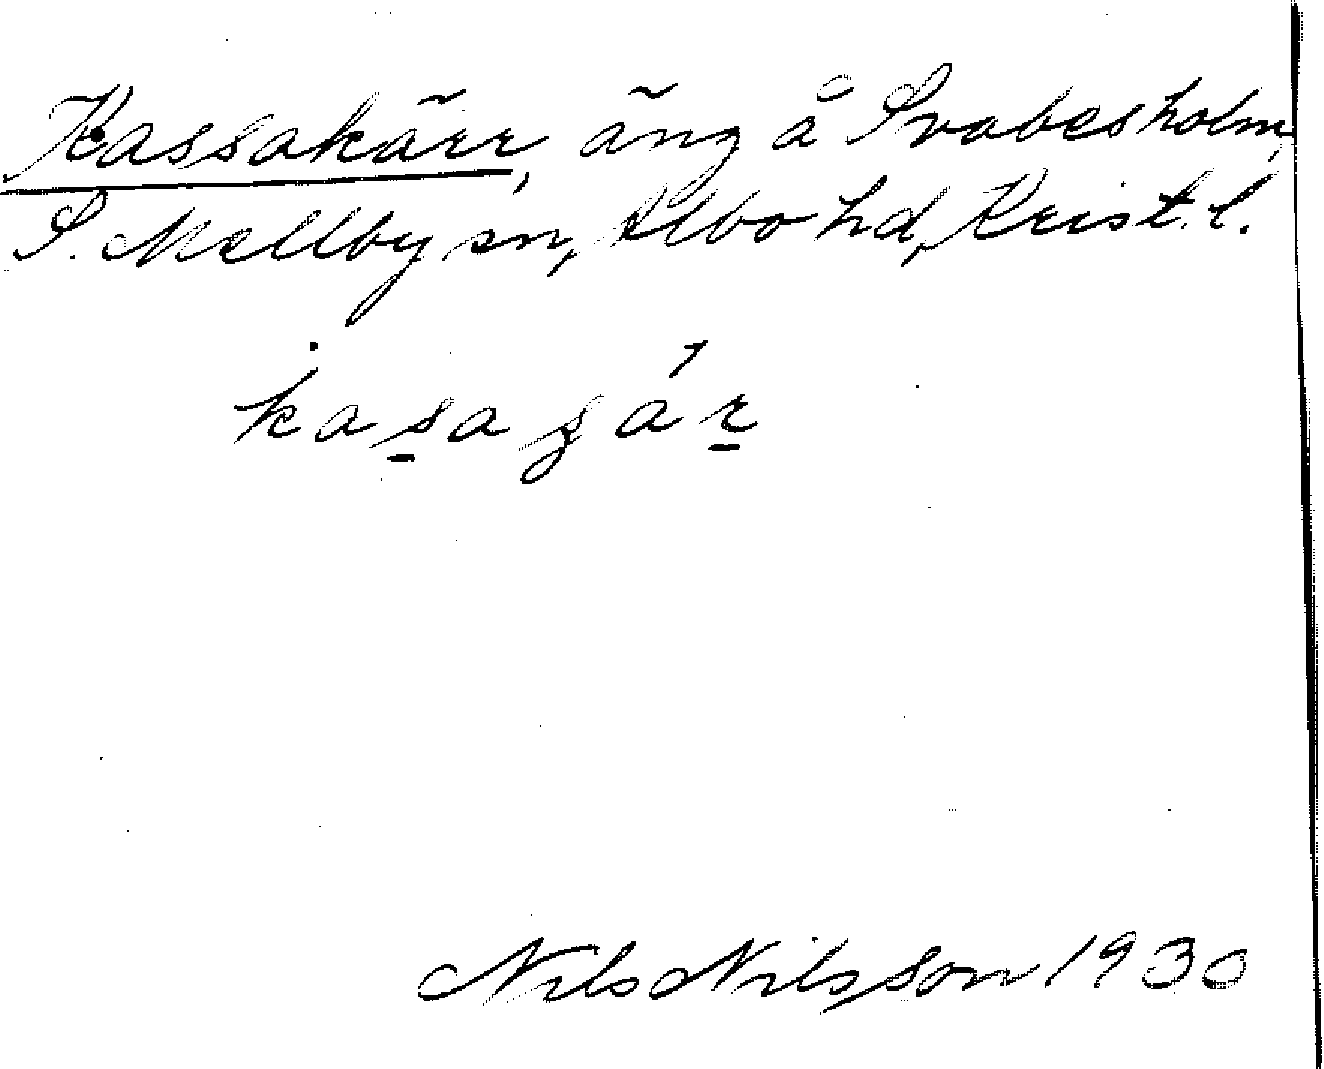 Kassakärr, äng å Svabesholm,
S. Mellby sn, Albo hd, Krist. l.
Nils Nilsson 1930